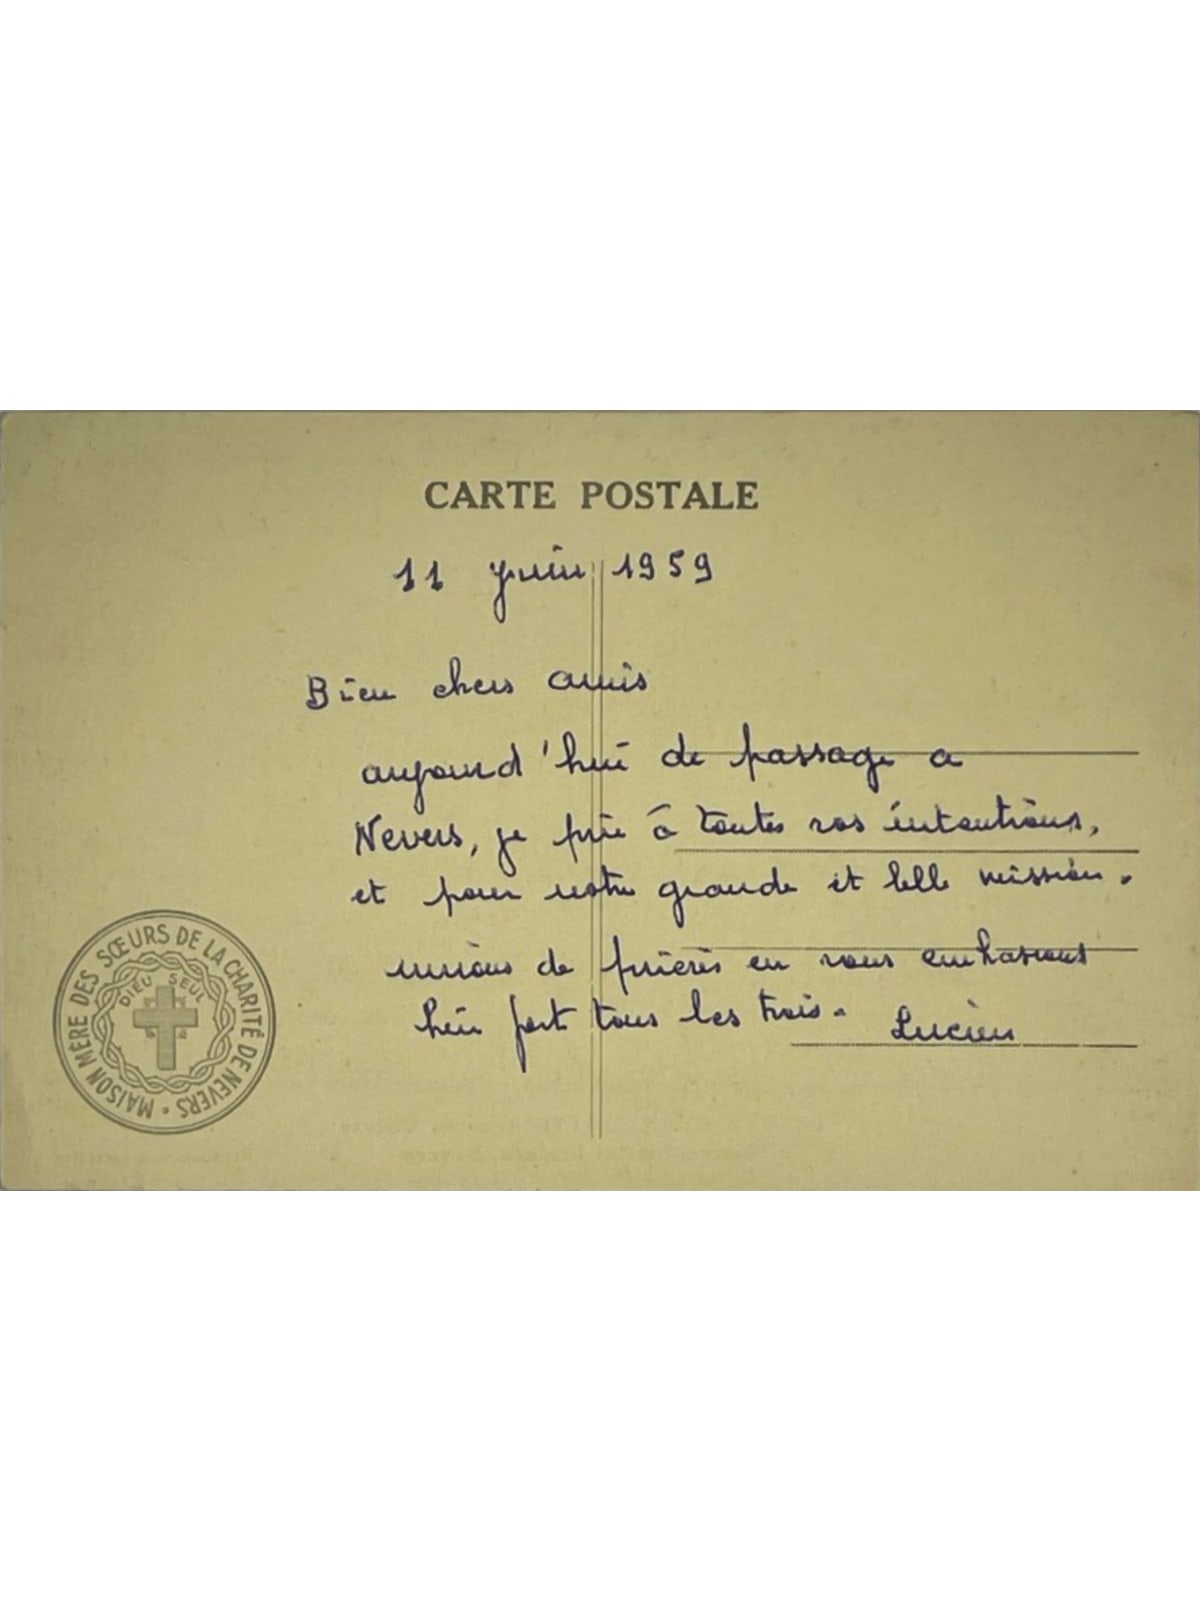 CARTE POSTALE
11 juin 1959
Bien chers amis
aujourd'hui de passage a
Nevers, je prie à toutes vos intentions,
et pour notre grande et belle mission.
unions de prières en vous embrassant
bien fort tous les trois. Lucien
MAISON MÈRE DES SŒURS DE LA CHARITÉ DE NEVERS
DIEU SEUL